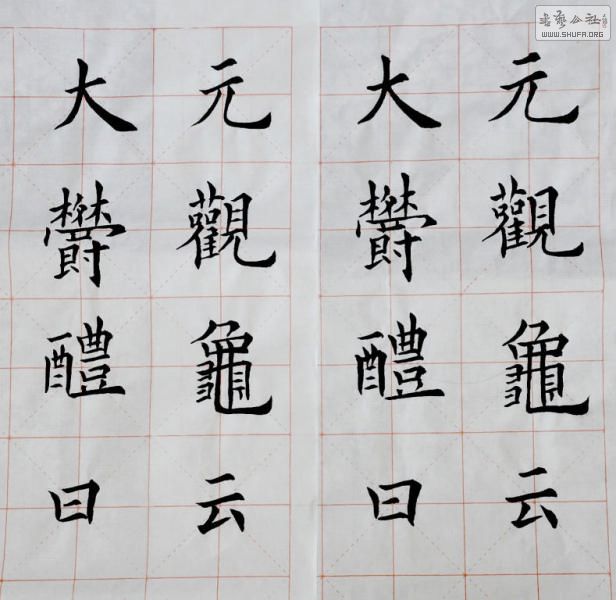 元觀龜云
大欝醴曰
元觀龜云
大欝醴曰
WWW.SHUFA.ORG